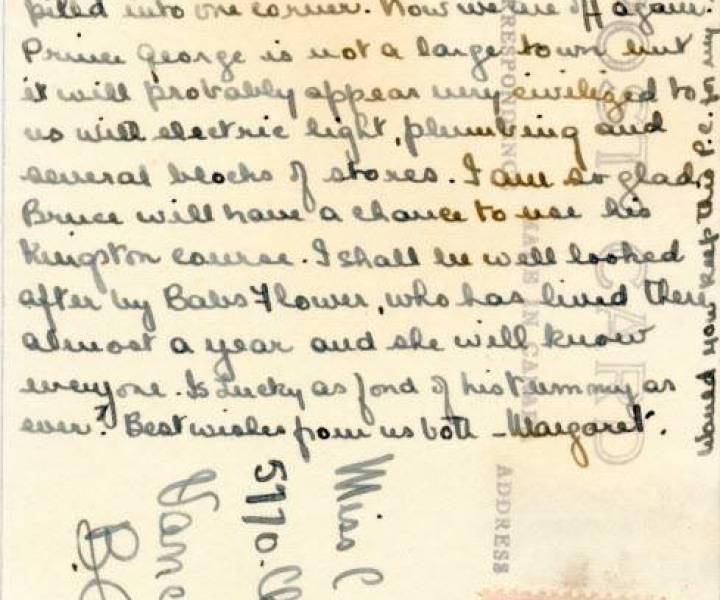 piled into one corner. Now we are off again.
Prince George is not a large town but
it will probably appear very civilized to
us with electric light, plumbing and
several blocks of stores. I am so glad
Bruce will have a chance to use his
Kingston course. I shall be well looked
after by Babs Flower, who has lived there
almost a year and she will know
everyone. Is Lucky as fond of his tummy as
ever? Best wishes from us both - Margaret.
Would you keep this P.C. for my
POST CARD
CORRESPONDENCE
MADE IN CANADA
ADDRESS
Miss C
5770.
Vanc
B.C